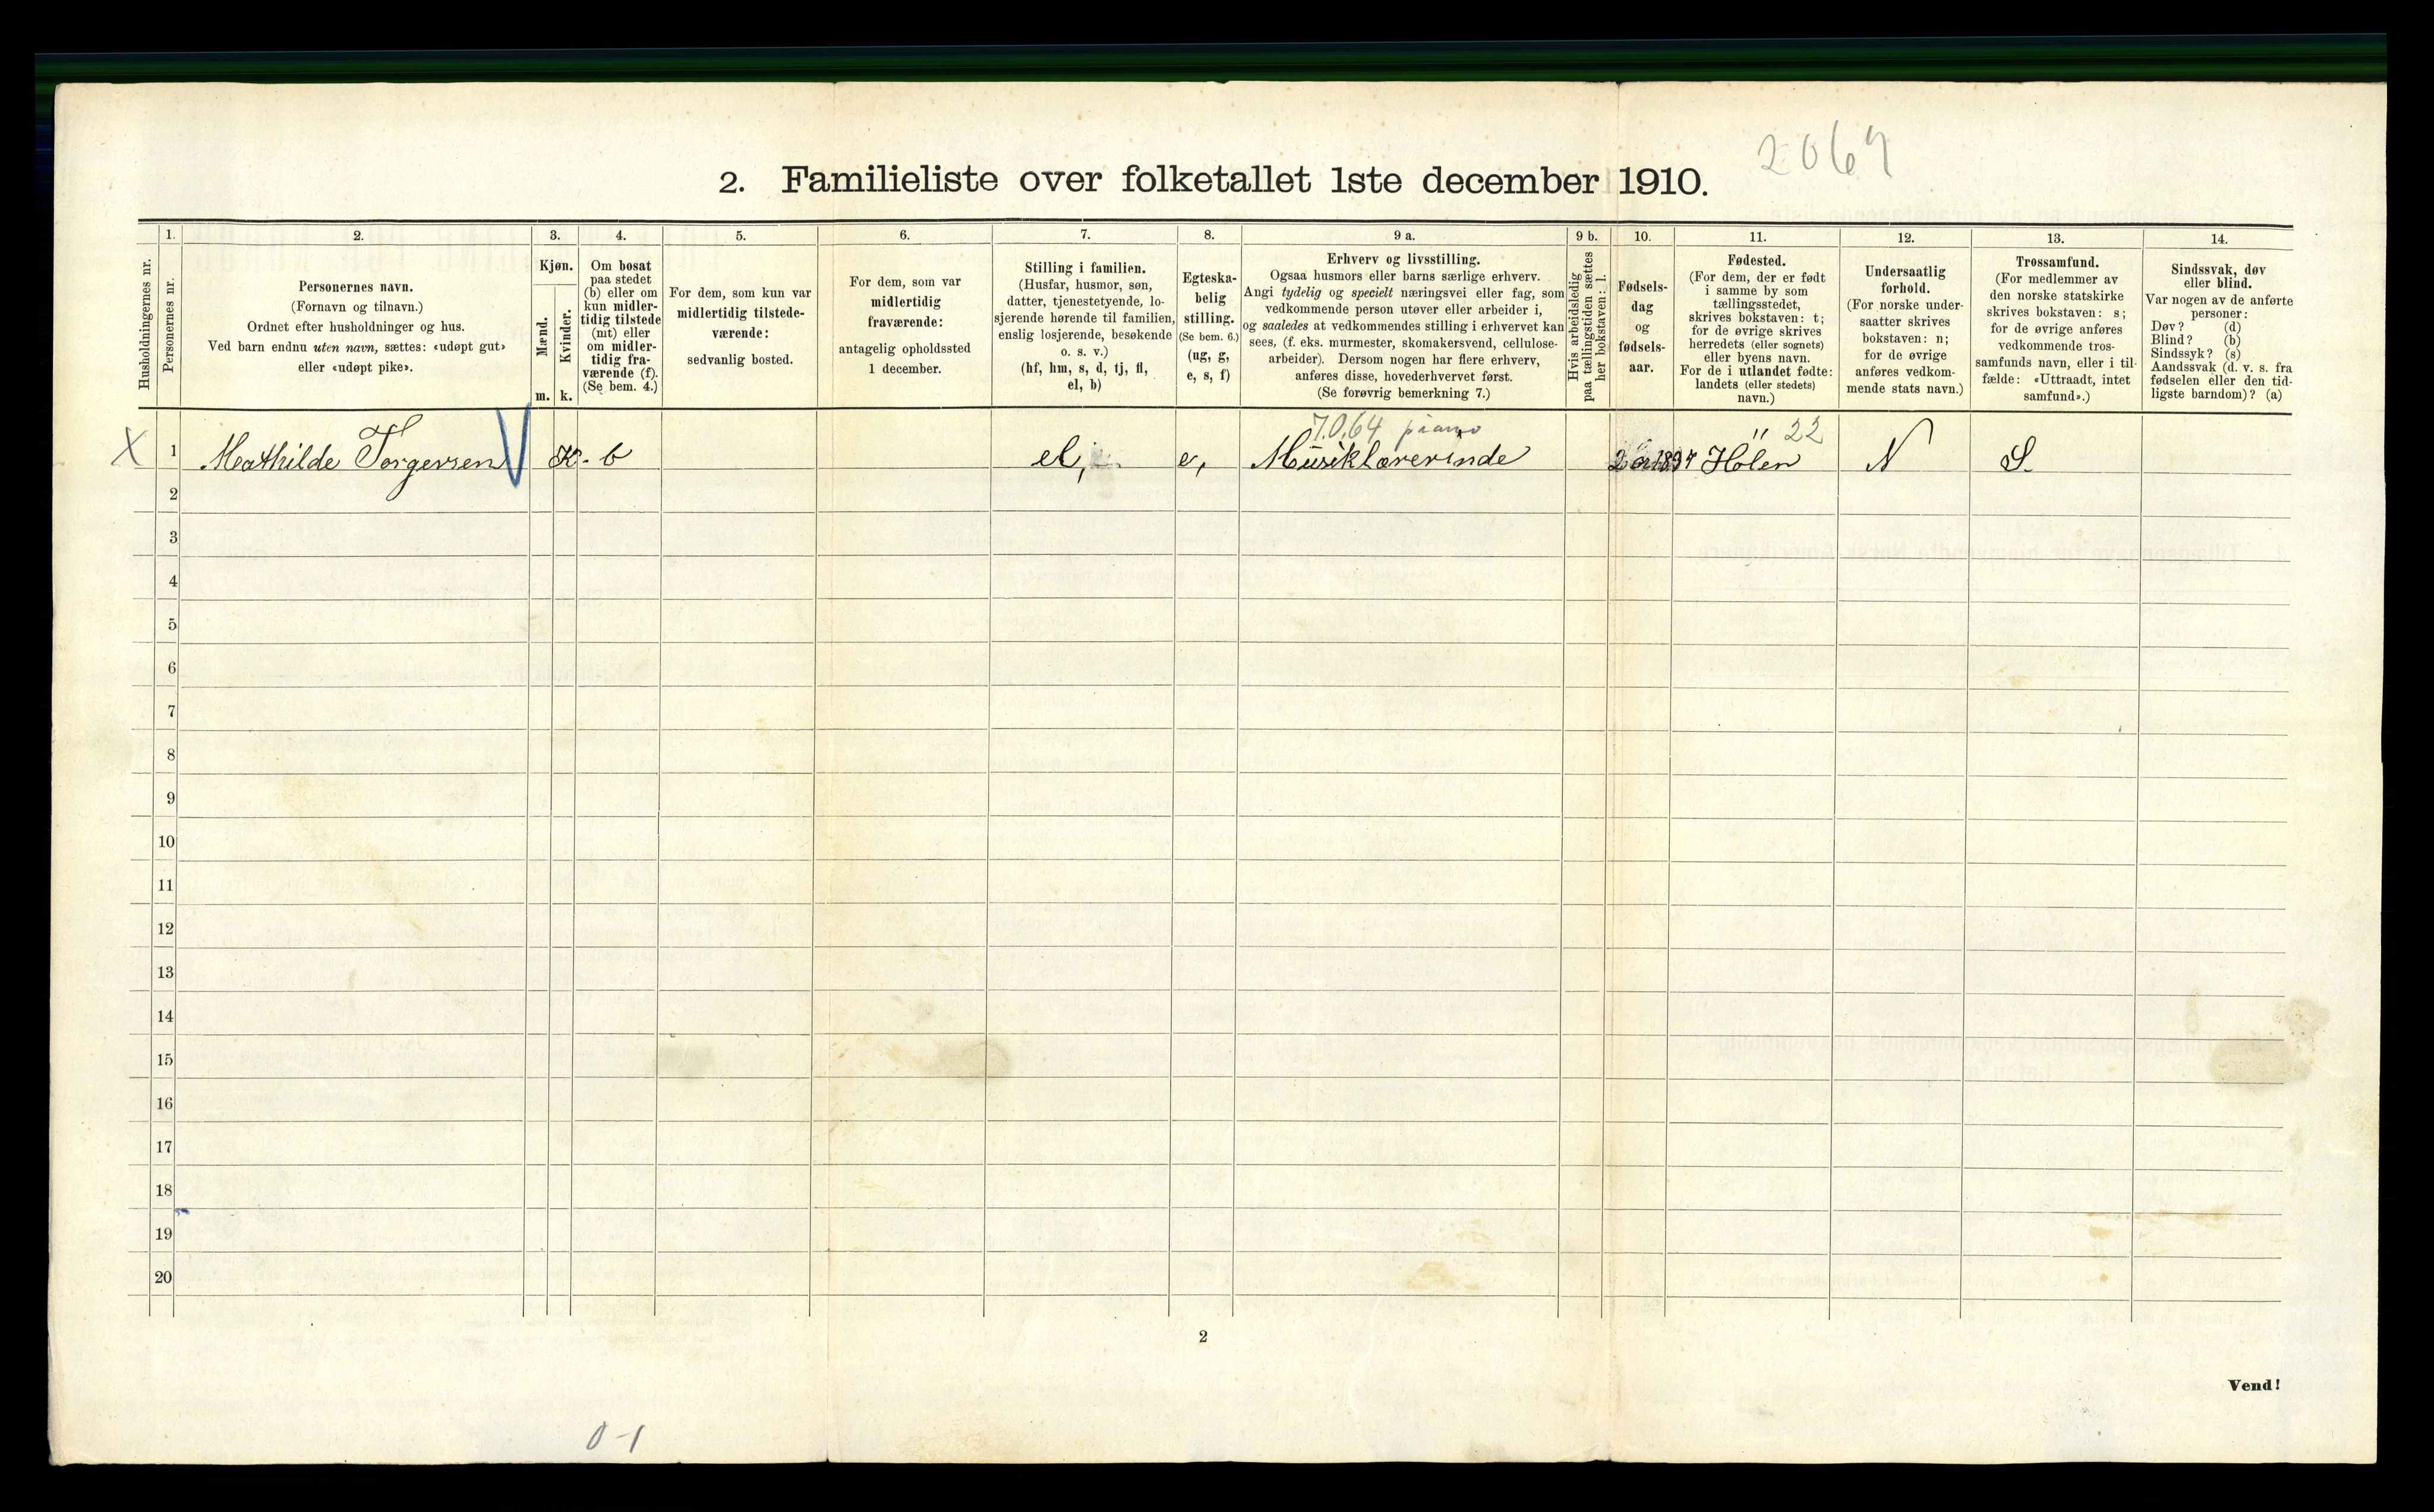 2069
2. Familieliste over folketallet 1ste december 1910.
Husholdningernes nr.
1.
Personernes nr.
2.
Personernes navn.
(Fornavn og tilnavn.)
Ordnet efter husholdninger og hus.
Ved barn endnu uten navn, sættes: «udøpt gut»
eller «udøpt pike».
3.
Kjøn.
Mænd.
m.
Kvinder.
k.
4.
Om bosat
paa stedet
(b) eller om
kun midler-
tidig tilstede
(mt) eller
om midler-
tidig fra-
værende (f).
(Se bem. 4.)
5.
For dem, som kun var
midlertidig tilstede-
værende:
sedvanlig bosted.
6.
For dem, som var
midlertidig
fraværende:
antagelig opholdssted
1 december.
7.
Stilling i familien.
(Husfar, husmor, søn,
datter, tjenestetyende, lo-
sjerende hørende til familien,
enslig losjerende, besøkende
o. s. v.)
(hf, hm, s, d, tj, fl,
el, b)
8.
Egteska-
belig
stilling.
(Se bem. 6.)
(ug, g,
e, s, f)
9 a.
Erhverv og livsstilling.
Ogsaa husmors eller barns særlige erhverv.
Angi tydelig og specielt næringsvei eller fag, som
vedkommende person utøver eller arbeider i,
og saaledes at vedkommendes stilling i erhvervet kan
sees, (f. eks. murmester, skomakersvend, cellulose-
arbeider). Dersom nogen har flere erhverv,
anføres disse, hovederhvervet først.
(Se forøvrig bemerkning 7.)
9 b.
Hvis arbeidsledig
paa tællingstiden sættes
her bokstaven: l.
10.
Fødsels-
dag
og
fødsels-
aar.
11.
Fødested.
(For dem, der er født
i samme by som
tællingsstedet,
skrives bokstaven: t;
for de øvrige skrives
herredets (eller sognets)
eller byens navn.
For de i utlandet fødte:
landets (eller stedets)
navn.)
12.
Undersaatlig
forhold.
(For norske under-
saatter skrives
bokstaven: n;
for de øvrige
anføres vedkom-
mende stats navn.)
13.
Trossamfund.
(For medlemmer av
den norske statskirke
skrives bokstaven: s;
for de øvrige anføres
vedkommende tros-
samfunds navn, eller i til-
fælde: «Uttraadt, intet
samfund».)
14.
Sindssvak, døv
eller blind.
Var nogen av de anførte
personer:
Døv? (d)
Blind? (b)
Sindssyk? (s)
Aandssvak (d. v. s. fra
fødselen eller den tid-
ligste barndom)? (a)
7.0.64 piano
22
X 1 Mathilde Torgersen K. b el, e, Musiklærerinde Hölen N S.
2
3
4
5
6
7
8
9
10
11
12
13
14
15
16
17
18
19
20
2
Vend!
0-1